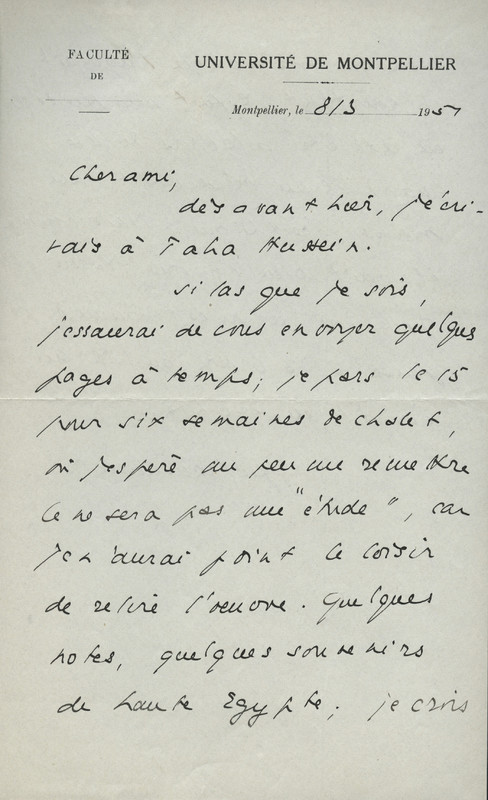 FACULTÉ
DE
UNIVERSITÉ DE MONTPELLIER
Montpellier, le 8/3 1951
Cher ami,
dès avant hier, j'écri-
vais à Taha Hussein.
Si las que je sois,
j'essaierai de vous envoyer quelques
pages à temps; je pars le 15
pour six semaines de chalet,
où j'espère un peu me remettre
Ce ne sera pas une "étude", car
je n'aurai point le loisir
de relire l'oeuvre. Quelques
notes, quelques souvenirs
de haute Egypte; je crois